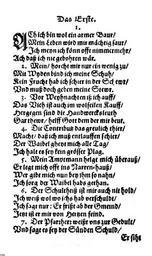 Das Erste.
1.
Ach ich bin wol ein armer Baur/
Mein Leben wird mir mächtig saur/
Ich meyn ich könn offt nimmermehr/
Ach daß ich nie gebohren wär.
2. Mein/ hocht mir nur ein wenig zu/
Mit Wyden bind ich meine Schuh/
Kein Frucht hab ich schier in der Scheur/
Und muß doch geben meine Steur.
3. Vor Weynachten ich auff/
Das Vieh ist auch im wolfeilen Kauff/
Hergegen sind die Handwercksleuth
Gar thewr/ helff Gott dem der mir beut.
4. Die Contribution das greulich thier/
Macht/ daß ich muß entlauffen schier/
Der Waibel gheyt mich alle Tag/
Ich halt es sey kein grösser Plag.
5. Mein Amptmann heigt mich überauß/
Er legt mich offt ins Naren-hauß/
Mich wundert wo ers nem so nah/
Ich sorg der Waibel habs gethan.
6. Der Schultheiß ist mir auch nie hold/
Ich weiß wol wo ichs hab verschuldt/
Ich sagt nur: Er frißt ab der Gmeind/
Jetzt ist er mir von Hertzen feind.
7. Der Pfarrherr weist uns zur Gedult/
Und sagt es sey der Sünden Schuld/
Er siht